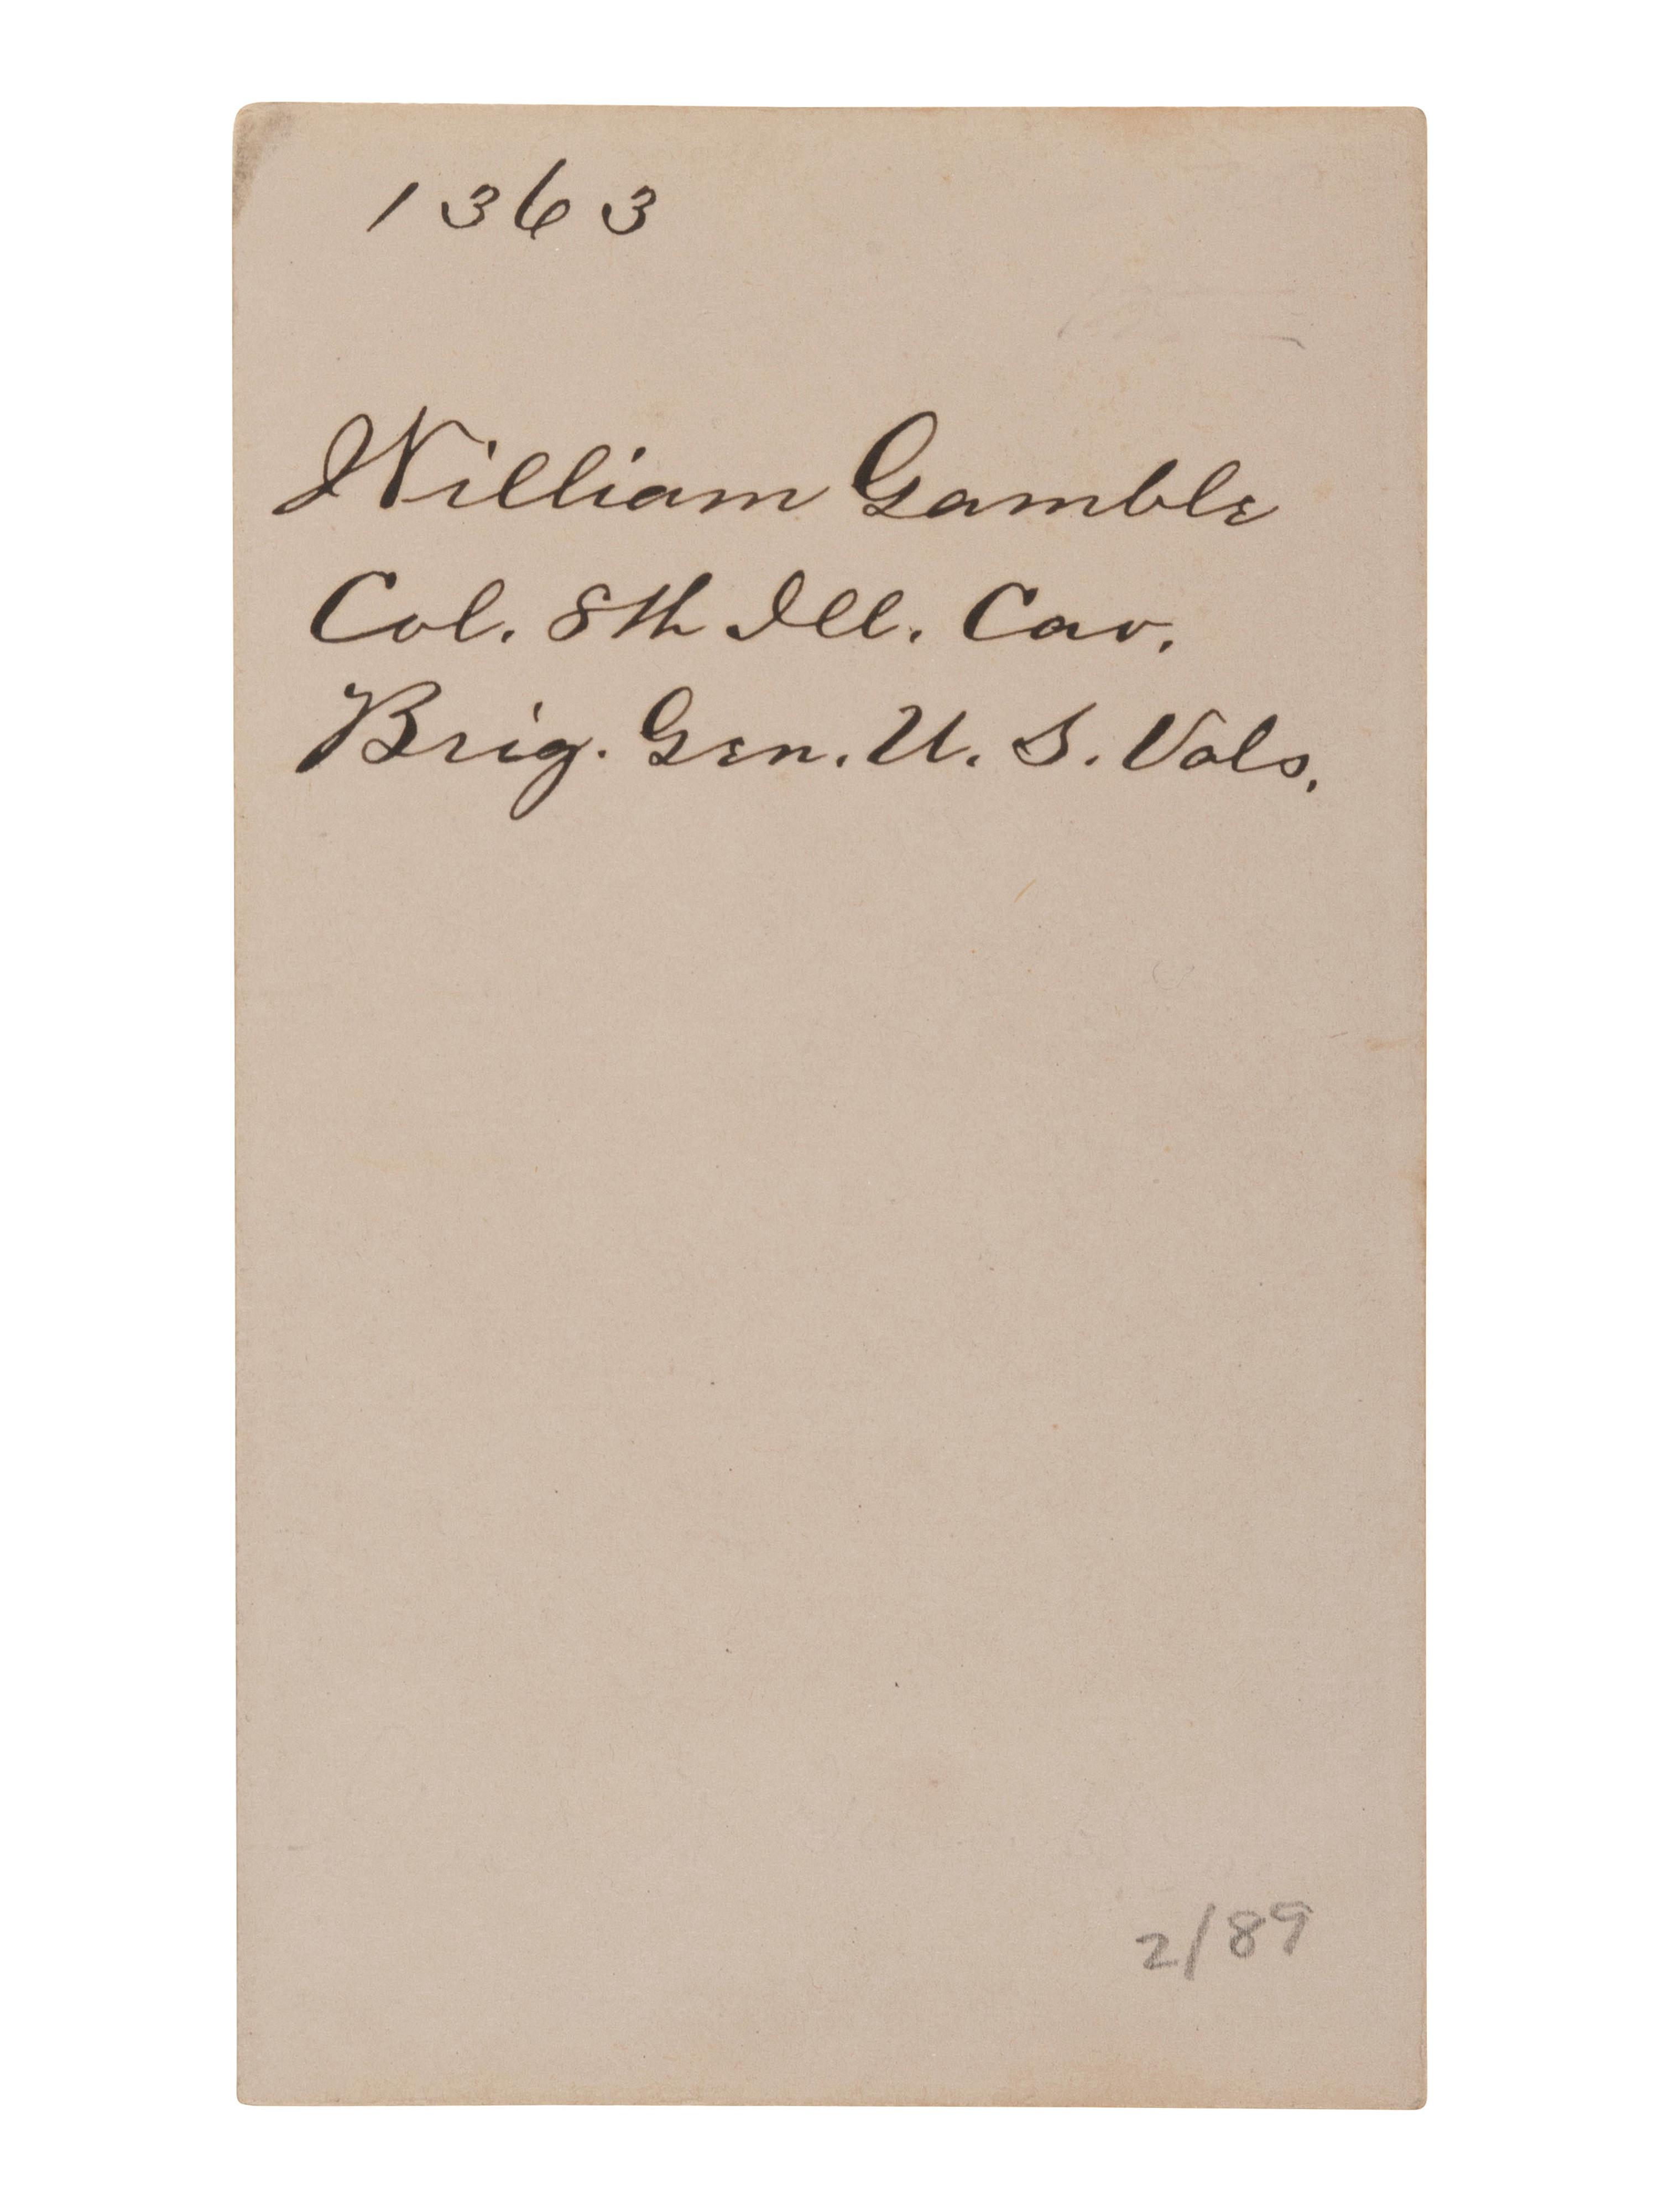 1363
William Gamble
Col. 8th Ill. Cav.
Brig. Gen. U. S. Vols.
2/89